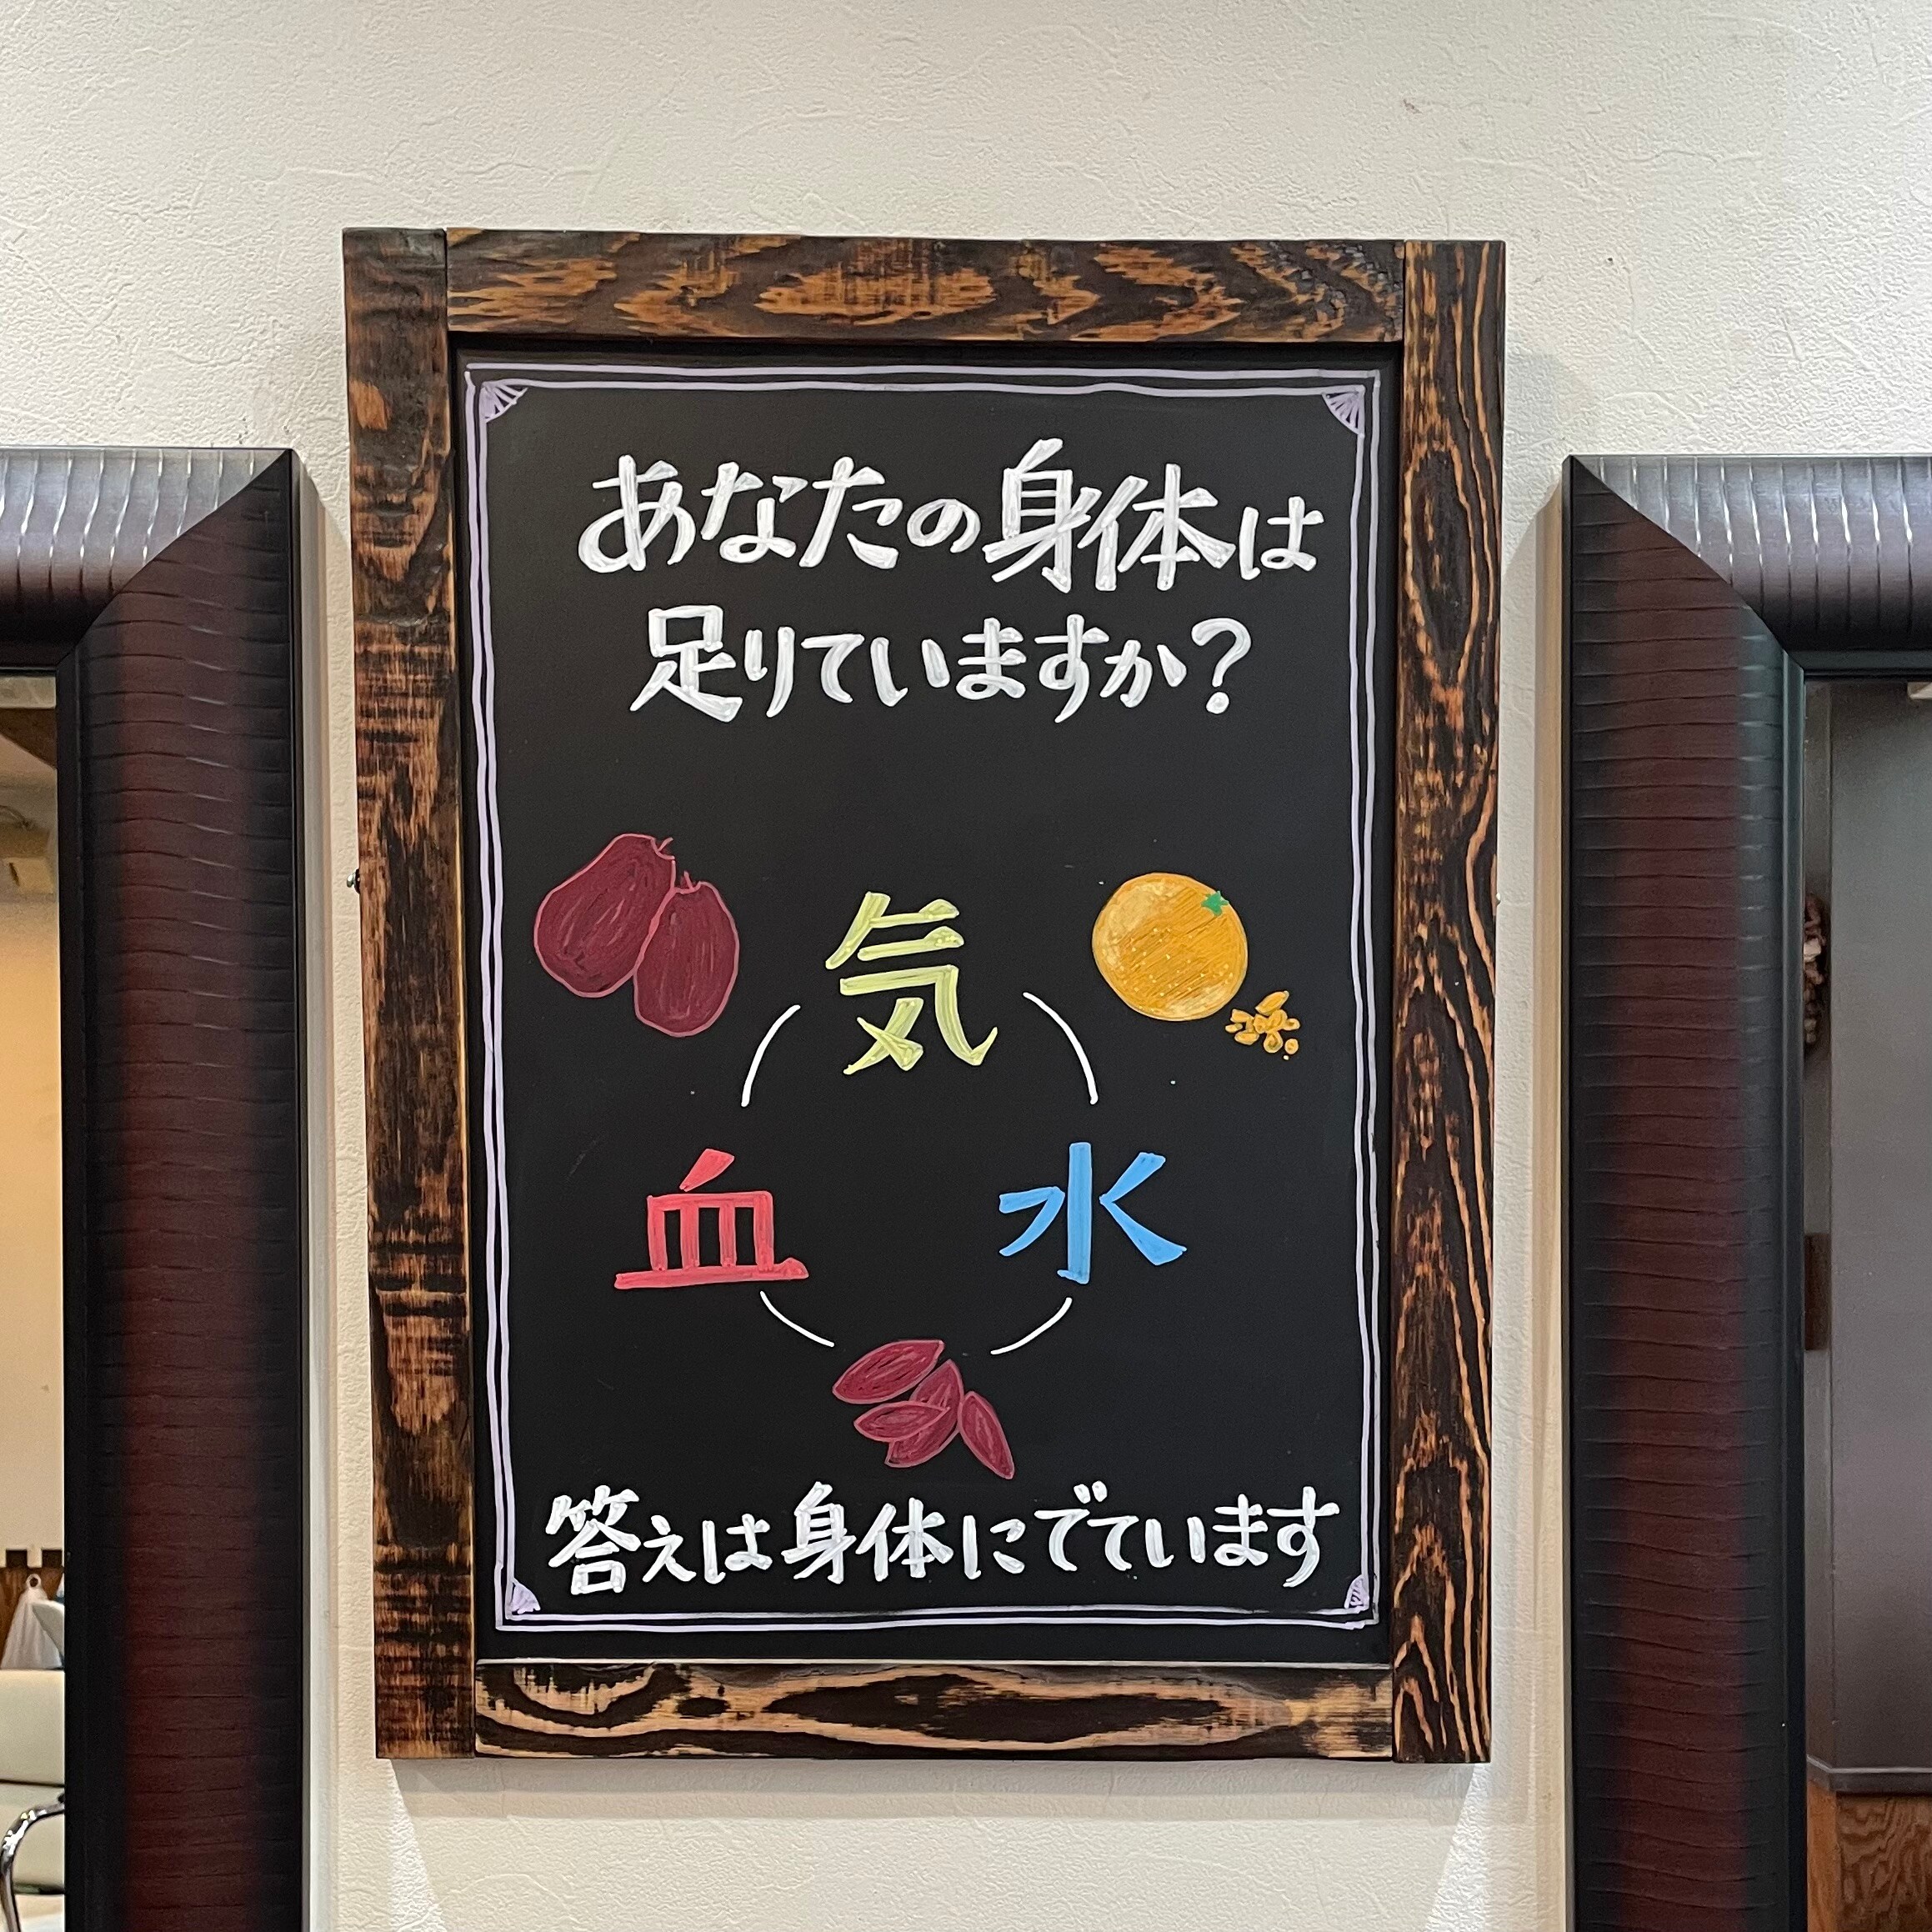 あなたの身体は
足りていますか?
気
血 水
答えは身体にでています